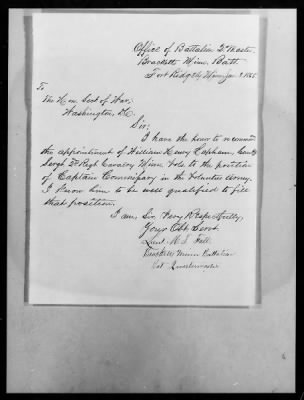 Office of Battalion Qr Master,
Brackett Minn. Batt
Fort Ridgely Minn Jan 3
To
The Hon. Sect of War,
Washington, D.C.
Sir:
I have the honor to recommend
the appointment of William Henry Lapham, Com'y
Sergt 2d Regt Cavalry Minn Vols to the position
of Captain Commissary in the Volunteer Army.
I know him to be well qualified to fill
that position.
I am, Sir, Very Respectfully,
Your Obt Servt
Lieut.
Bracketts Minn Battalion
Quartermaster